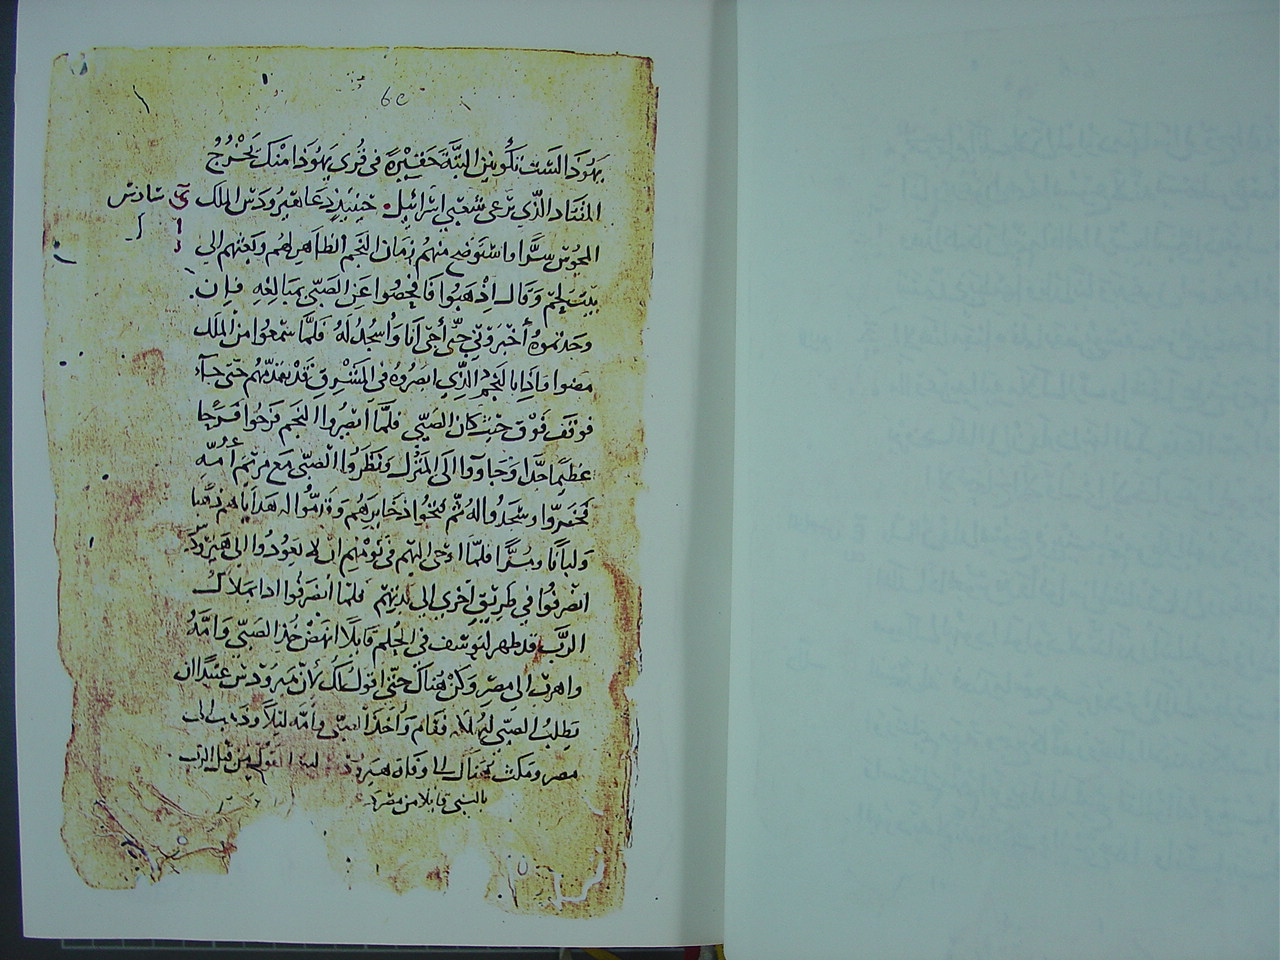 60
يَهُوذَا لَسْتِ تَكُونِينَ البَتَّةَ حَقِيْرَةً في قُرى يَهُوذَا مِنْكِ يَخْرُجُ
المُقتَاد الَّذِي يَرْعَى شَعْبِي اسْرَائِيل . حِينَئِذٍ دَعَا هِيْرُودَسُ المَلك سَادَسْ
المَجُوسَ سِرًّا واسْتَوضَحَ مِنْهُم زمَان النَجم الظَاهِر لهُم وبَعَثهم الي
بَيْتِ لَحْمٍ وَقَالَ اذْهَبُوا فَافْحَصُوا عَنِ الصَّبِيِّ مُبَالغهِ فَإِن .
وجَدتموهُ أَخْبَرُوني حَتَّى أَجِّي أَنَا وَأَسْجُدُ لَهُ فَلَمَّا سَمْعُوا مِنَ المَلَك
مَضوا فاذَا بالنَجْم الَّذِي ابصَرُوه في المَشْرِقِ قَدْ تقدّمَهُم حَتى جآء
فوقَفَ فَوْق حَيثُ كَان الصَّبِيّ فلمَّا ابْصَرُوا النَجم فَرِحُوا فَرَحًا
عَظِيمًا جدًّا وَجَاووا الى المَنْزل وَنَظَرُوا الصَّبِيّ مَع مَرْيَم أُمِّهِ
فَخَرّوا وسَجَدُوا لهُ ثُمّ فتحُوا ذَخَايرهُم وقَدّمُوا له هَدَايَاهُم ذهَبًا
وَلبانًا ومُرًّا فلمَّا اوحي اليهم في نَوْمِهم ان لا يعُودُوا الي هيْرودس
انْصَرفُوا في طَرِيقٍ أخْرَي الي بَلدِهم فلمَّا انصَرَفُوا اذا بمَلاكُ
الرَّبّ قد ظهر ليوسُف في الحُلم قَايلًا انهَضْ خُذ الصَّبِيّ وَامّهُ
واهرب الي مِصر وَكنْ هُناكَ حَتَّى اقول لكَ لأنّ هيرُودسَ عتيدًا ان
يَطلبُ الصّبيّ ليهلكه فقَام وأَخذَ الصَّبيّ وأمّه ليْلًا وذهب الى
مصر ومَكث هُناك الى وفَاة هيرُودس القول من قبل الرب
بالنبي قايلا من مصر